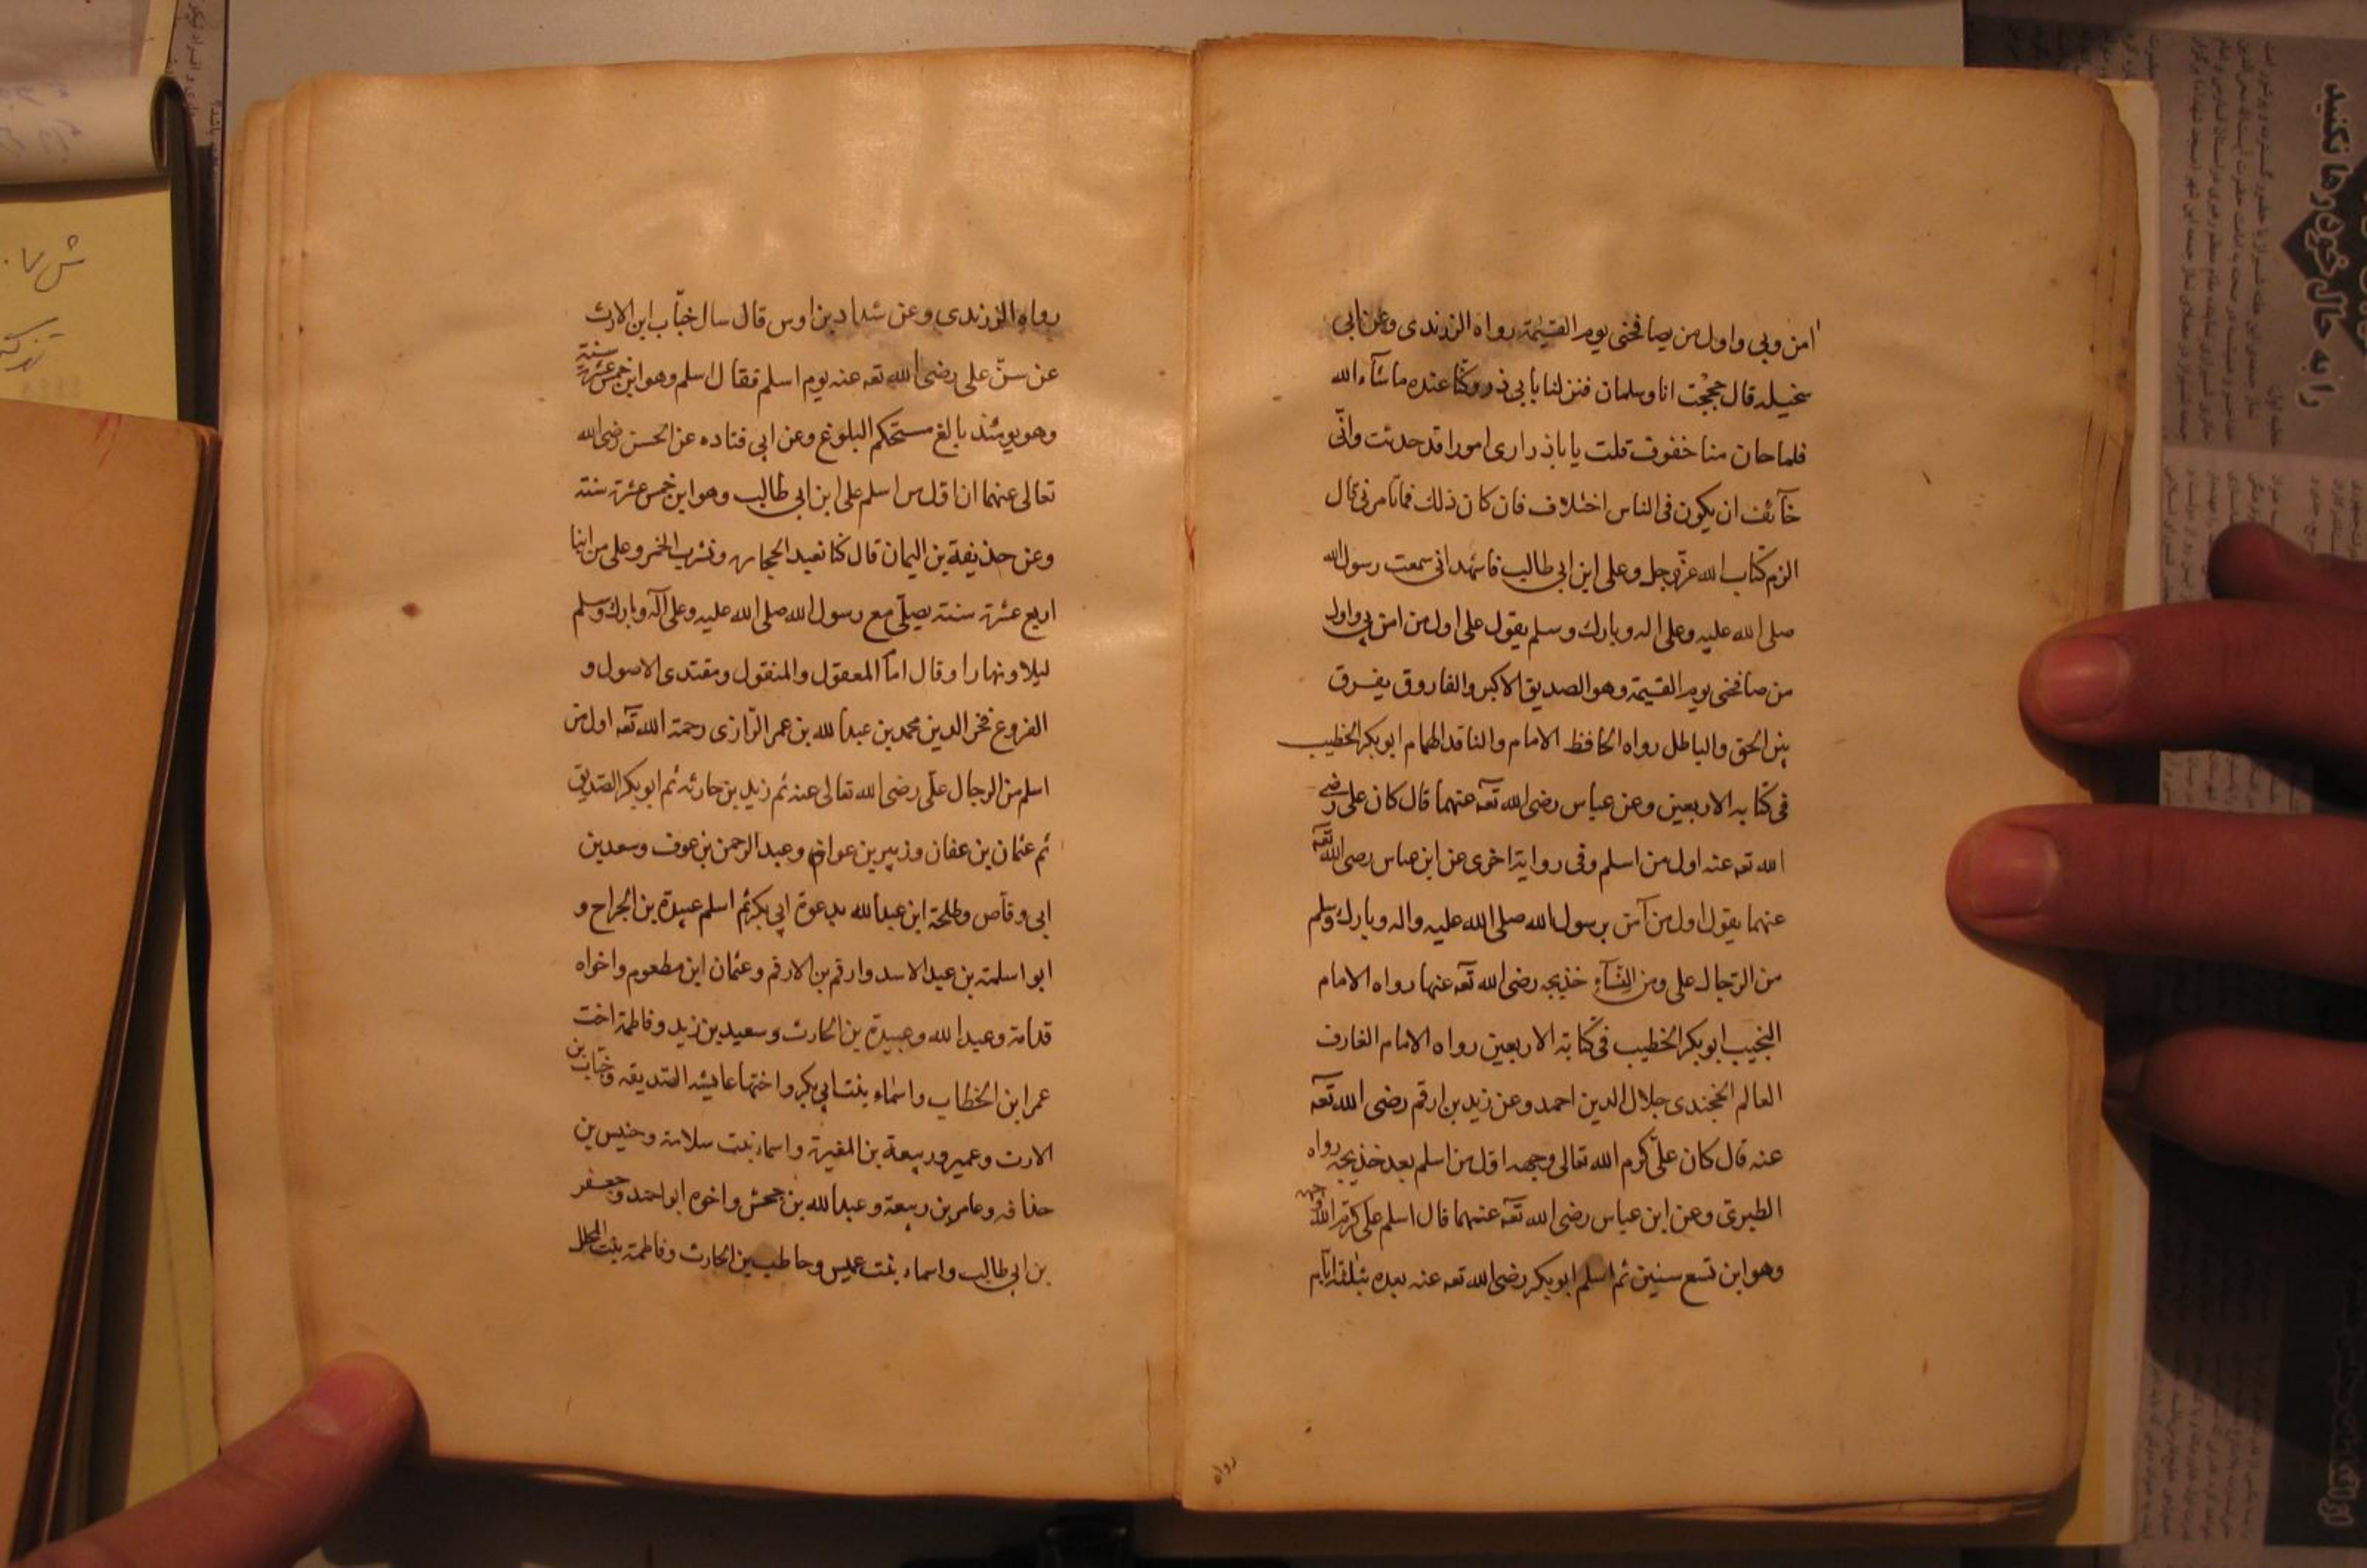 امن وبی واول من یصافحنی یوم القیٰمة رواه الزرندی وعن ابی
سخیله قال حججْت انا وسلمان فنزلنا بابی ذر وکنّا عنده ماشآء الله
فلما حان منا خفوف قلت یا باذر اری امورا قد حدثت وانّی
خآئف ان یکون فی الناس اختلاف فان کان ذلك فما تامرنی قال
الزم کتاب الله عزّوجل وعلی ابن ابی طالب فاشهد انی سمعت رسول الله
صلی الله علیه وعلی اله وبارك وسلم یقول علی اول من امن بی واول
من صافحنی یوم القیمة وهو الصدیق الاکبر والفاروق یفرق
بین الحق والباطل رواه الحافظ الامام والناقد الهمام ابوبکر الخطیب
فی کتابه الاربعین وعن عباس رضی الله تعه عنهما قال کان علی رضی
الله تعه عنه اول من اسلم وفی روایة اخری عن ابن عباس رضی الله تعه
عنهما یقول اول من آمن برسول الله صلی الله علیه واله وبارك وسلم
من الرّجال علی ومن النّسآء خذیجه رضی الله تعه عنها رواه الامام
النجیب ابوبکر الخطیب فی کتابة الاربعین رواه الامام الغارف
العالم الخجندی جلال الدین احمد وعن زید بن ارقم رضی الله تعه
عنه قال کان علیّ کرم الله تعالی وجهه اوّل من اسلم بعد خذیجه رواه
الطبری وعن ابن عباس رضی الله تعه عنهما قال اسلم علی کرّم الله وجهه
وهو ابن تسع سنین ثم اسلم ابوبکر رضی الله تعه عنه بعده بثلثة ایّام
رواه
رواه الزرندی وعن شداد بن اوس قال سال خبّاب ابن الارث
عن سنّ علی رضی الله تعه عنه یوم اسلم فقال اسلم وهو ابن خمس عشرة سنة
وهو یومئذ بالغ مستحکم البلوغ وعن ابی قتاده عن الحسن رضی الله
تعالی عنهما ان اوّل من اسلم علی ابن ابی طالب وهو ابن خمس عشرة سنة
وعن حذیفة بن الیمان قال کنا نعبد الحجارة ونشرب الخمر وعلی من ابنا
اربع عشرة سنة یصلّی مع رسول الله صلی الله علیه وعلی آله وبارك وسلم
لیلا ونهارا وقال امام المعقول والمنقول ومقتدی الاصول و
الفروع فخر الدین محمد بن عبد الله بن عمر الرّازی رحمة الله تعه اول من
اسلم من الرجال علّی رضی الله تعالی عنه ثم زید بن حارثه ثم ابوبکر الصّدیق
ثم عثمان بن عفان وزبیر بن عوام وعبد الرحمن بن عوف وسعد بن
ابی وقاص وطلحة ابن عبد الله بدعوة ابی بکر ثم اسلم عبیدة بن الجراح و
ابو اسلمة بن عبد الاسد وارقم بن الارقم وعثمان ابن مطعوم واخواه
قدامة وعبد الله وعبیدة بن الحارث وسعید بن زید وفاطمة اخت
عمر ابن الخطاب واسماء بنت ابی بکر واختها عایشه الصّدیقه وخبّاب بن
الارت وعمیر وربیعة بن المغیرة واسماء بنت سلامة وخنیس بن
حذافه وعامر بن ربیعة وعبد الله بن جحش واخوه ابو احمد وجعفر
بن ابی طالب واسماء بنت عمیس وحاطب بن الحارث وفاطمة بنت المحلل
را به حال خود رها نکنید